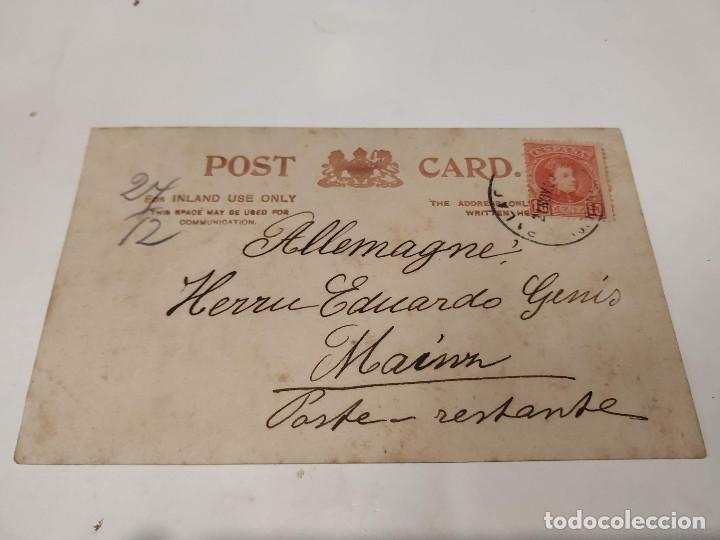 POST CARD.
FOR INLAND USE ONLY
THIS SPACE MAY BE USED FOR
COMMUNICATION.
THE ADDRESS ONLY
WRITTEN HE
27/12
ESPAÑA
Allemagne
Herrn Eduardo Genis
Mainz
Poste-restante
todocoleccion
todocoleccion.net